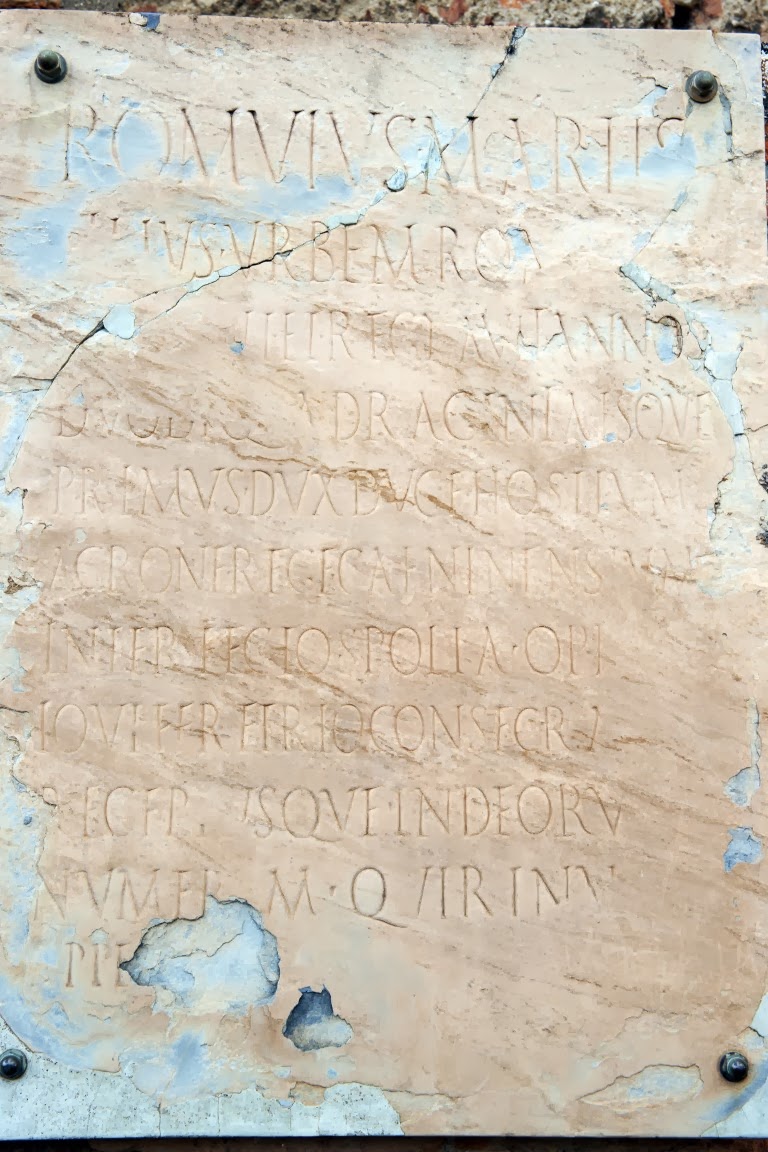 ROMVLVS MARTIS
FILIVS VRBEM ROM
REGNAVIT ANNOS
DVODEQVADRAGINTA ISQVE
PRIMVS DVX DVCE HOSTIVM
ACRONE REGE CAENINENSIVM
INTERFECTO SPOLIA OPI
IOVI FERETRIO CONSECRA
RECEP VSQVE IN DEORV
NVMERVM QVIRINV